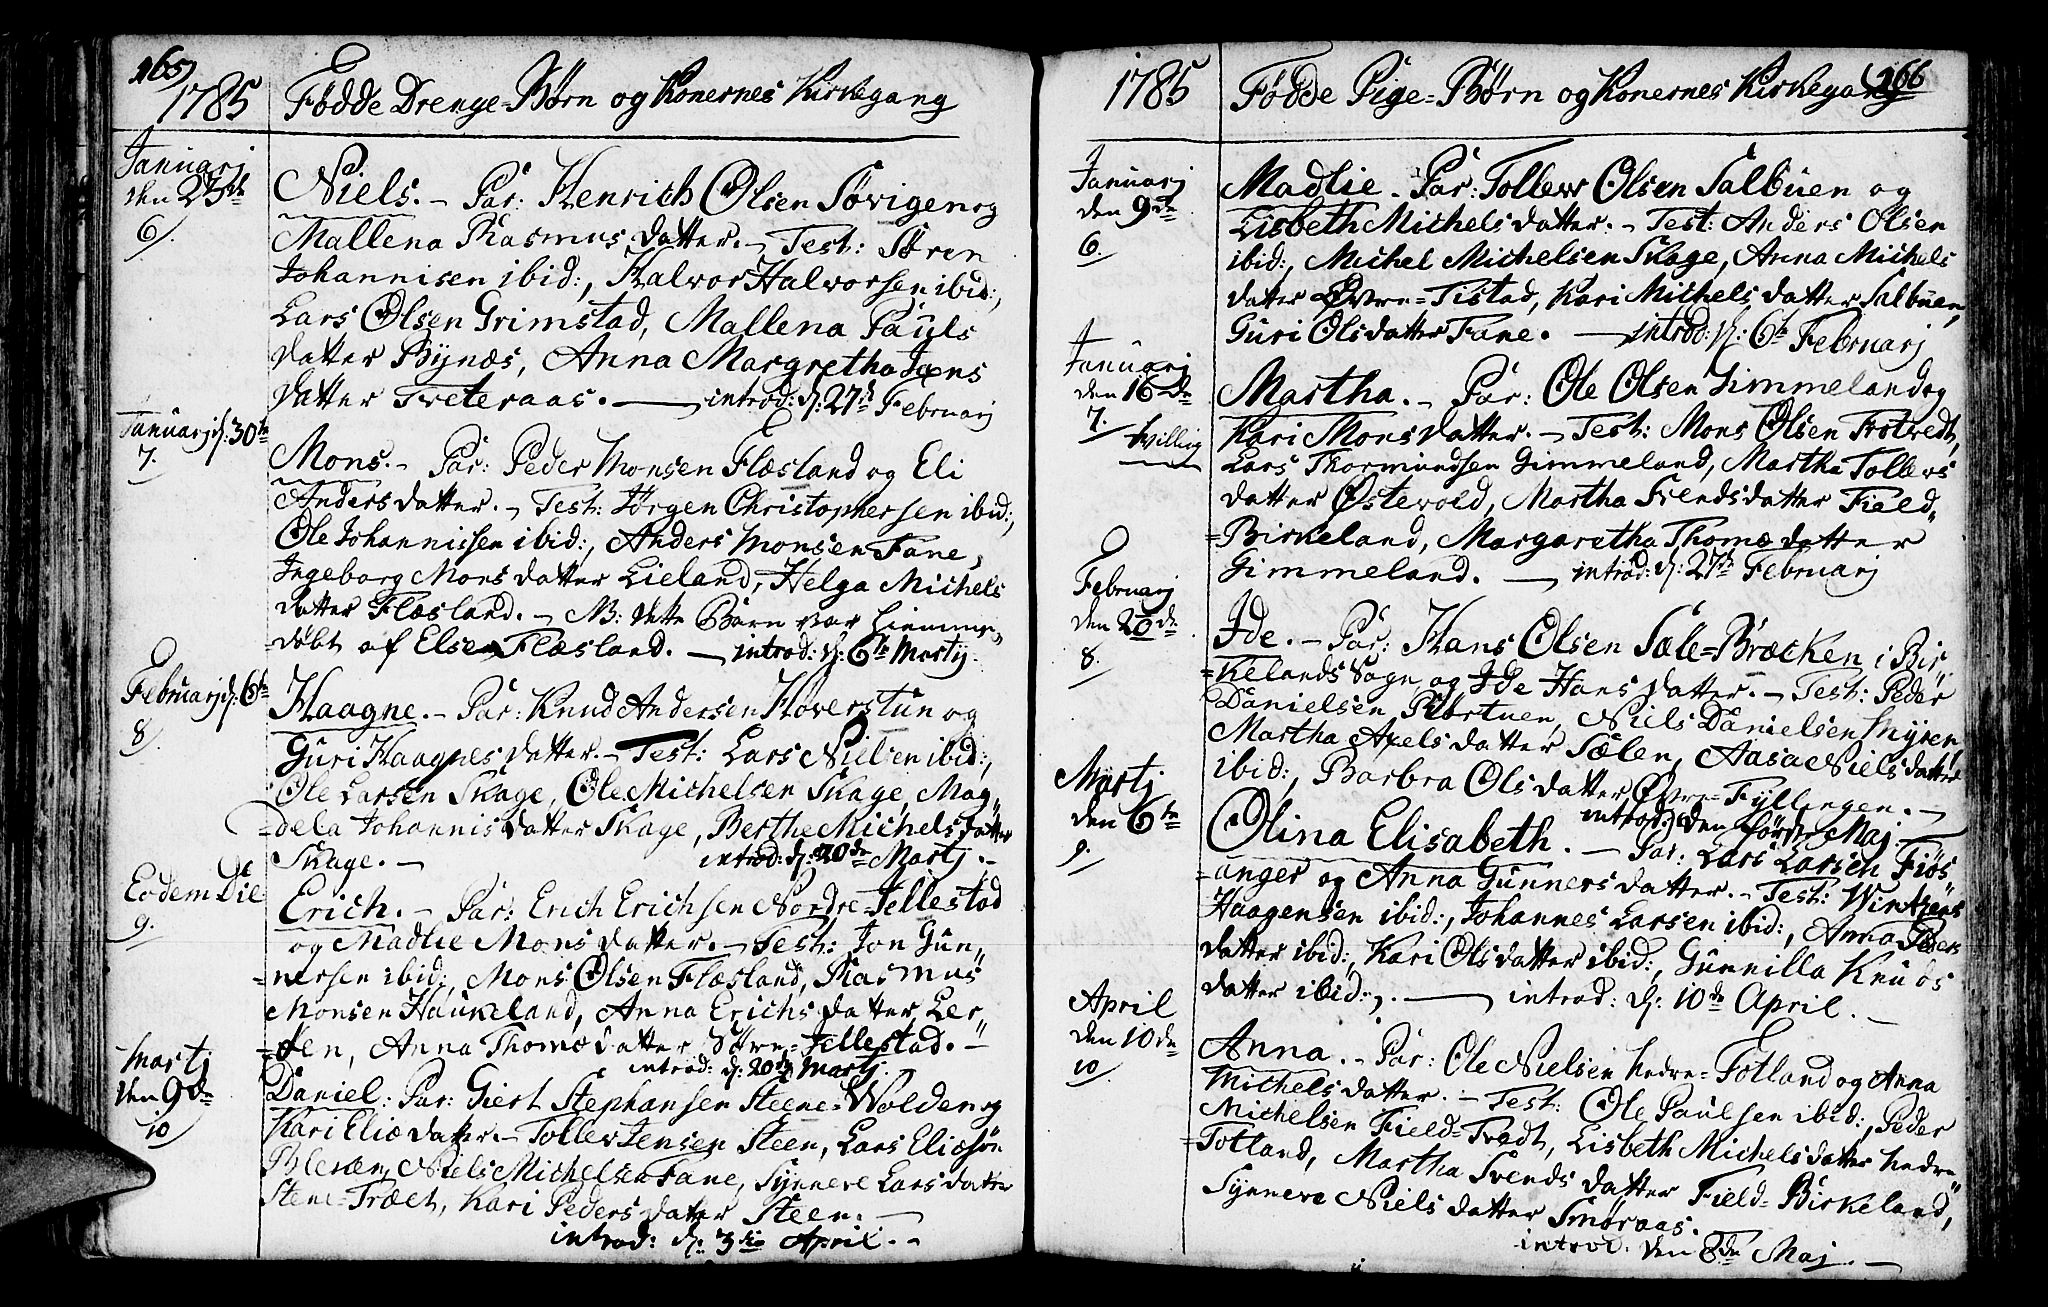 165
1785 Fødde Drenge-Børn og Konernes Kirkegang
Januarj
den 23de
6.
Niels. - Par: Henrich Olsen Søvigen og
Mallena Rasmus datter. - Test: Søren
Johannisen ibid:, Halvor Halvorsen ibid:,
Lars Olsen Grimstad, Mallena Pauls
datter Bynæs, Anna Margretha Jens
datter Tveteraas. - introd: d: 27de Februarj
Januarj d: 30te
7.
Mons. - Par: Peder Monsen Flæsland og Eli
Anders datter. - Test: Jørgen Christophersen ibid:,
Ole Johannissen ibid:, Anders Monsen Fane,
Ingeborg Mons datter Lieland, Helga Michels
datter Flæsland. - NB: dette Barn var hiemme-
døbt af Else Flæsland. - introd: d: 6te Martj.
Februarj d: 6te
8.
Haagne. - Par: Knud Andersen Hoverstun og
Guri Haagnes datter. - Test: Lars Nielsen ibid:,
Ole Larsen Skage, Ole Michelsen Skage, Mag-
=dela Johannis datter Skage, Berthe Michels datter
Skage. - introd: d: 20de Martj. -
Eodem Die
9.
Erich. - Par: Erich Erichsen Nordre-Jellestad
og Madlie Mons datter. - Test: Jon Gun-
=nersen ibid:, Mons Olsen Flæsland, Rasmus
Monsen Haukeland, Anna Erichs datter Ler-
=den, Anna Thomæ datter Søre-Jellestad. -
introd: d: 20de Martj.
Martj
den 9de
10
Daniel: Par: Giert Stephansen Steene-Wolden og
Kari Eliæ datter. - Toller Jensen Steen, Lars Eliesøn
Niels Michelsen Fane, Synneve Lars datter
Stene-Træet, Kari Peders datter Steen. -
introd: d: 3die April. -
166
1785 Fødde Pige-Børn og Konernes Kirkegang
Januarj
den 9de
6.
Madlie. - Par: Tollew Olsen Salbuen og
Lisbeth Michels datter. - Test: Anders Olsen
ibid:, Michel Michelsen Skage, Anna Michels
datter Øvre-Tistad, Kari Michels datter Salbuen,
Guri Olsdatter Fane. - introd: d: 6te Februarj
Januarj
den 16de
7.
tvillig
Martha. - Par: Ole Olsen Gimmeland og
Kari Mons datter. - Test: Mons Olsen Trotvedt,
Lars Thormundsen Gimmeland, Martha Tollevs
datter Østevold, Martha Svends datter Field-
=Birkeland, Margaretha Thomæ datter
Gimmeland. - introd: d: 27de Februarj
Februarj
den 20de
8.
Ide. - Par: Hans Olsen Sæle-Bræcken i Bir-
=kelands Sogn og Ide Hans datter. - Test: Peder
Danielsen Pibrtuen, Niels Danielsen Myren,
Martha Axels datter Sælen, Aasa Niels datter
ibid:, Barbra Ols datter Øvre-Fyllingen. -
introd: den første Maj
Martj
den 6te
9.
Olina Elisabeth. - Par: Lars Larsen Fiøs-
=anger og Anna Gunners datter. - Test: Wintzens
Haagensen ibid:, Johannes Larsen ibid:, Anna Peders
datter ibid:, Kari Ols datter ibid:, Gunnilla Knuds
datter ibid:, . - introd: d: 10de April. -
April
den 10de
10
Anna. - Par: Ole Nielsen Nedre-Totland og Anna
Michels datter. - Test: Ole Paulsen ibid:, Peder
Michelsen Field-Tvedt, Lisbeth Michels datter Nedre-
=Totland, Martha Svends datter Field-Birkeland,
Synneve Niels datter Smøraas.
introd. den 8de Maj. -